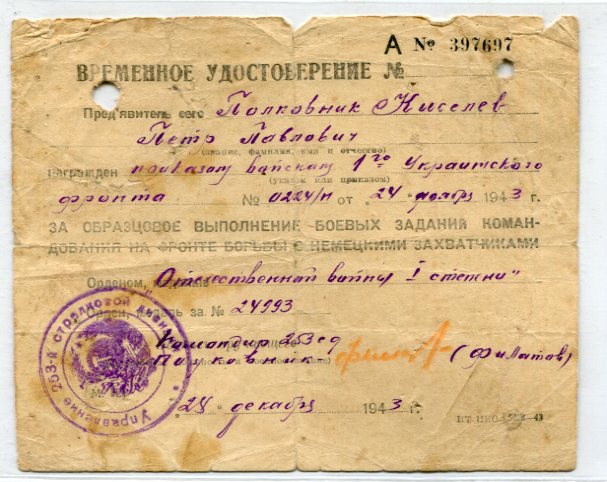 А № 397697
ВРЕМЕННОЕ УДОСТОВЕРЕНИЕ №
Пред'явитель сего Полковник Киселев
Петр Павлович
(звание, фамилия, имя и отчество)
награжден приказом войскам 1го Украинского
(указом или приказом)
фронта № 0224/н от "24" ноября 1943 г.
ЗА ОБРАЗЦОВОЕ ВЫПОЛНЕНИЕ БОЕВЫХ ЗАДАНИЙ КОМАН-
ДОВАНИЯ НА ФРОНТЕ БОРЬБЫ С НЕМЕЦКИМИ ЗАХВАТЧИКАМИ
Орденом, "Отечественной войны I степени"
Орден, медаль за № 24993
Командир 253 сд
Полковник (Филатов)
"24" декабря 1943 г.
Управление 253-й стрелковой дивизии